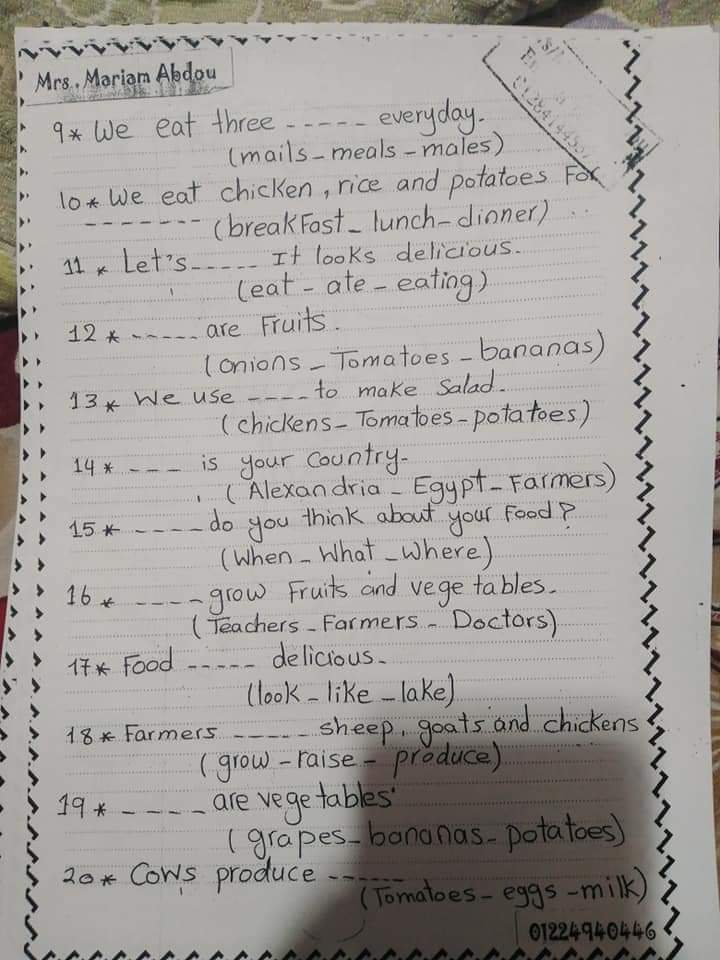 Mrs. Mariam Abdou
9* We eat three ----- everyday.
(mails - meals - males)
10* We eat chicken, rice and potatoes For
------- (breakFast - lunch - dinner)
11* Let's ----- It looks delicious.
(eat - ate - eating)
12* ----- are Fruits.
(onions - Tomatoes - bananas)
13* We use ---- to make Salad.
(chickens - Tomatoes - potatoes)
14* --- is your country.
(Alexandria - Egypt - Farmers)
15* ---- do you think about your Food?
(When - What - Where)
16* ---- grow Fruits and vegetables.
(Teachers - Farmers - Doctors)
17* Food ----- delicious.
(look - like - lake)
18* Farmers ----- sheep, goats and chickens
(grow - raise - produce)
19* ---- are vegetables.
(grapes - bananas - potatoes)
20* Cows produce ------
(Tomatoes - eggs - milk)
01224940446